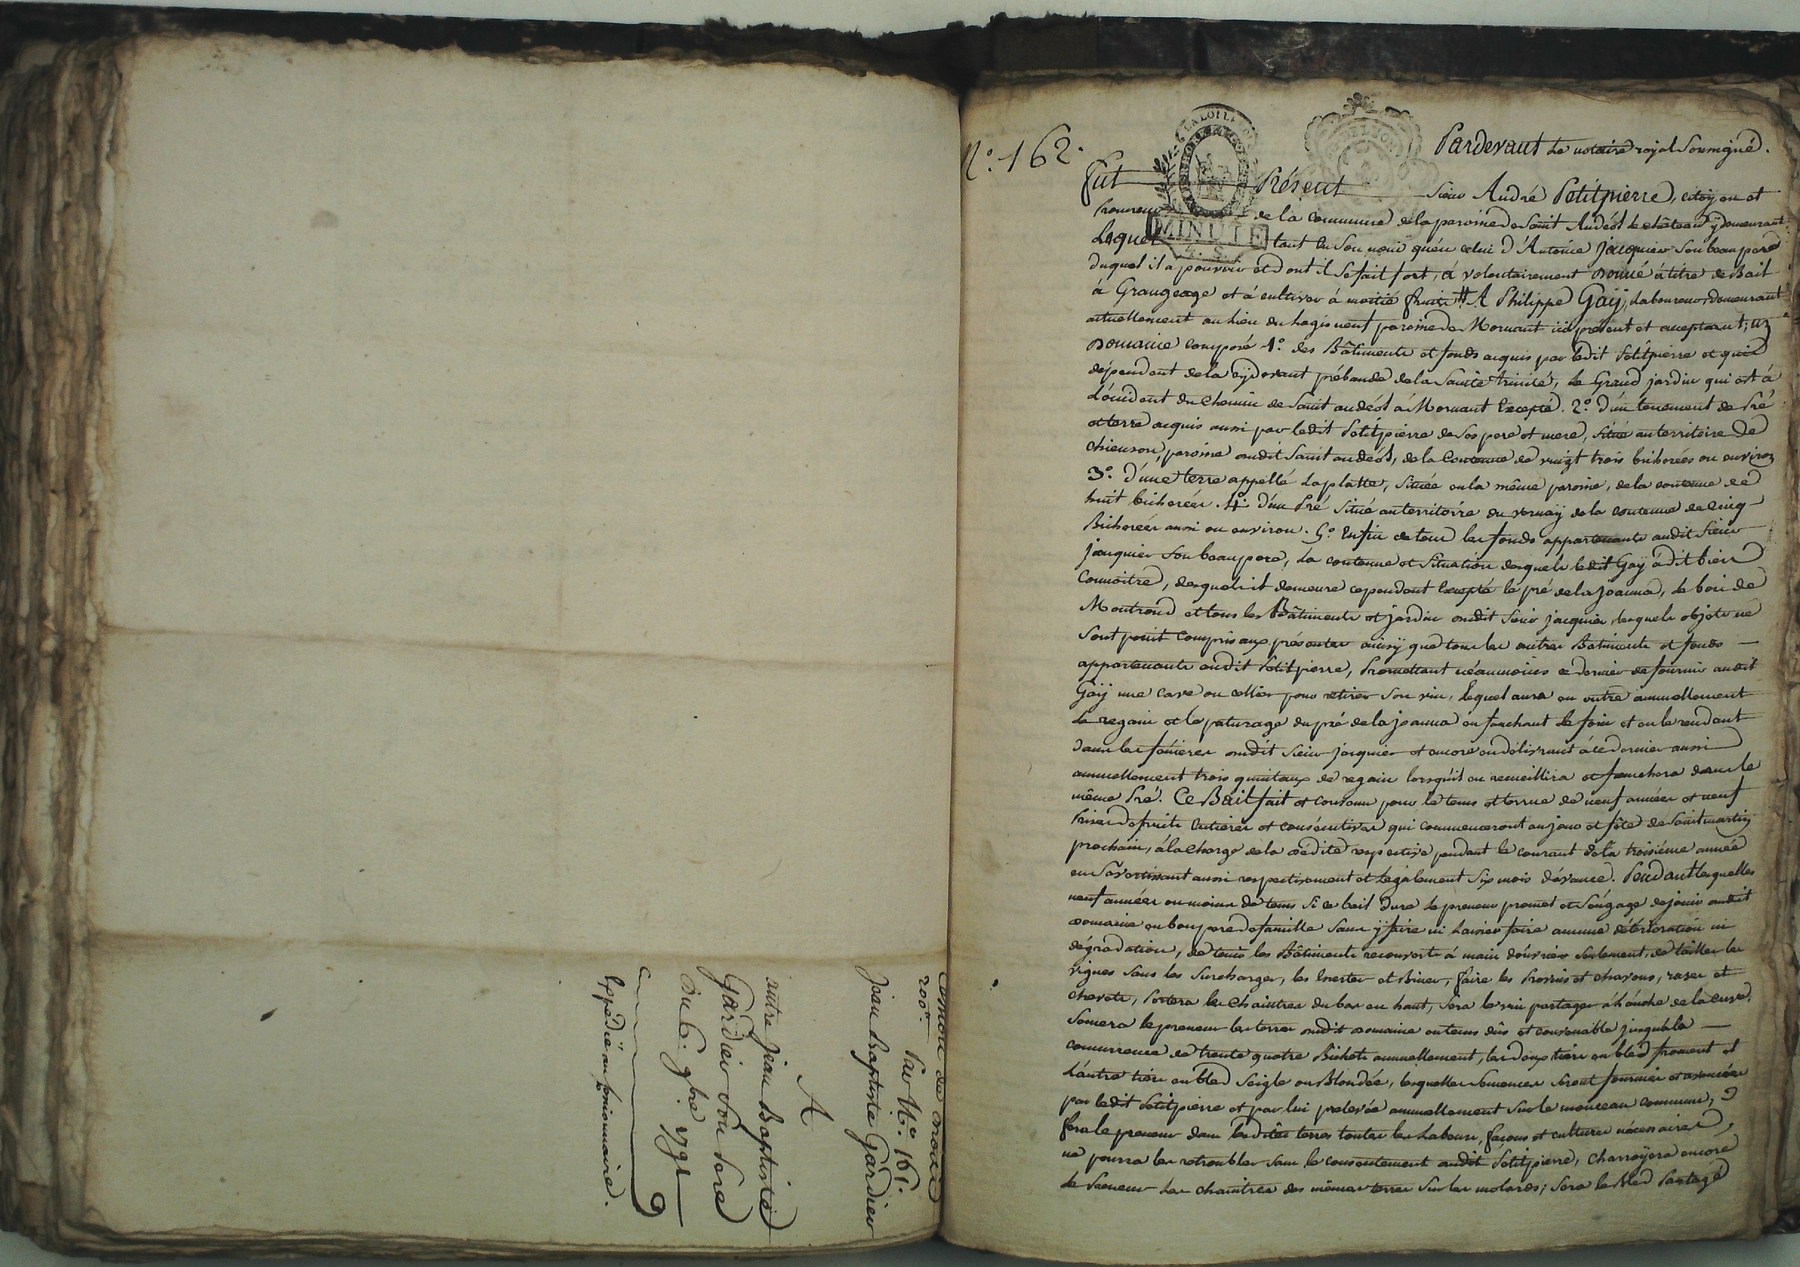 Cession de moitié
200tt
Par Me. 161.
Jean Baptiste Gardier
A
autre jean Baptiste
Gardier son Pere
Du 6. 9bre 1791
Expédié au pensionnaire.
N.° 162.
LA LOI LE ROI
MINUTE
Pardevant Le notaire royal Soussigné.
fut Présent Sieur André Petitpierre, citoyen et
Procureur de la commune de la paroisse de Saint Andéol le château y demeurant
Lequel tant en Son nom qu'en celui d'Antoine jacquier Son beaupere
duquel il a pouvoir et dont il Se fait fort, à volontairement donné à titre de Bail
à Grangeage et à cultiver à moitié fruits # A Philippe Gaÿ, Laboureur demeurant
actuellement au Lieu du Logis neuf paroisse de Mornant ici présent et acceptant; un
Domaine composé 1.° des Bâtiments et fonds acquis par ledit Petitpierre et qui
dépendent de la cÿdevant prébande de la Sainte trinité, Le Grand jardin qui est à
L'occident du chemin de Saint andéol à Mornant Excepté. 2.° d'un tenement de Pré
et terre acquis aussi par ledit Petitpierre de Ses pere et mere, Situé au territoire de
chieuson, paroisse dudit Saint andéol, de la Contenue de vingt trois bicherées ou environ
3.° d'une terre appellé Laplatte, Située en la même paroisse, de la contenue de
huit bicherées. 4.° d'un Pré Situé au territoire du vernaÿ de la contenue de cinq
Bicherées aussi ou environ. 5.° Enfin de tous les fonds appartenants audit Sieur
jacquier Son beaupere, La contenue et Situation desquels ledit Gaÿ à dit bien
Connoitre, desquels il demeure cependant Excepté le pré de la joanna, Le bois de
Montrond et tous les Bâtiments et jardin dudit Sieur jacquier, lesquels objets ne
Sont point Compris aux présentes ainsÿ que tous les autres Batiments et fonds
appartenants audit Petitpierre, Promettant néanmoins ce dernier de fournir audit
Gaÿ une cave ou cellier pour retirer Son vin, Lequel aura en outre annuellement
Le regain et le paturage du pré de la joanna en fauchant Le foin et en le rendant
dans les fenieres dudit Sieur jacquier et encore en délivrant à ce dernier aussi
annuellement trois quintaux de regain lorsqu'il en recueillira et fauchera dans le
même Pré. Ce Bail fait et convenu pour le tems et terme de neuf années et neuf
Prises de fruits Entieres et consécutives qui commenceront au jour et fête de Saint martin
prochain, à la charge de la dédite respective pendant le courant de la troisieme année
en S'avertissant aussi respectivement et Légalement Six mois d'avance. Pendant Lesquelles
neuf années ou moins de tems Si ce bail dure Le preneur promet et S'engage de jouir dudit
domaine en bon pere de famille Sans y faire ni Laisser faire aucune déterioration ni
dégradation, de tenir les Bâtiments recouverts à main d'ouvrier Seulement, de tailler les
vignes Sans les Surcharger, les Enerter et Biner, faire les Provins et chavons, raser et
chevets, Portera les Chaintres du bas en haut, Sera le vin partagé à L'anche de la cuve.
Semera le preneur les terres dudit domaine en tems dûs et convenable jusqu'à la
concurrence de trente quatre Bichets annuellement, les deux tiers en bled froment et
L'autre tiers en bled Seigle ou Blondée, lesquelles Semences Seront fournies et avancées
par ledit Petitpierre et par lui prelevée annuellement Sur le monceau commun,
fera le preneur dans Lesdites terres toutes les Labours, façons et cultures nécessaires,
ne pourra les retroubler Sans le consentement dudit Petitpierre, Charroyera encore
Le Preneur Les chaintres des mêmes terres Sur les molards; Sera le Bled Partagé